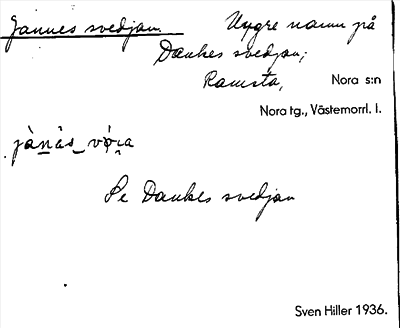 Jannes svedjan. Yngre namn på
Dankes svedjan;
Ramsta, Nora s:n
Nora tg., Västernorrl. l.
Se Dankes svedjan
Sven Hiller 1936.